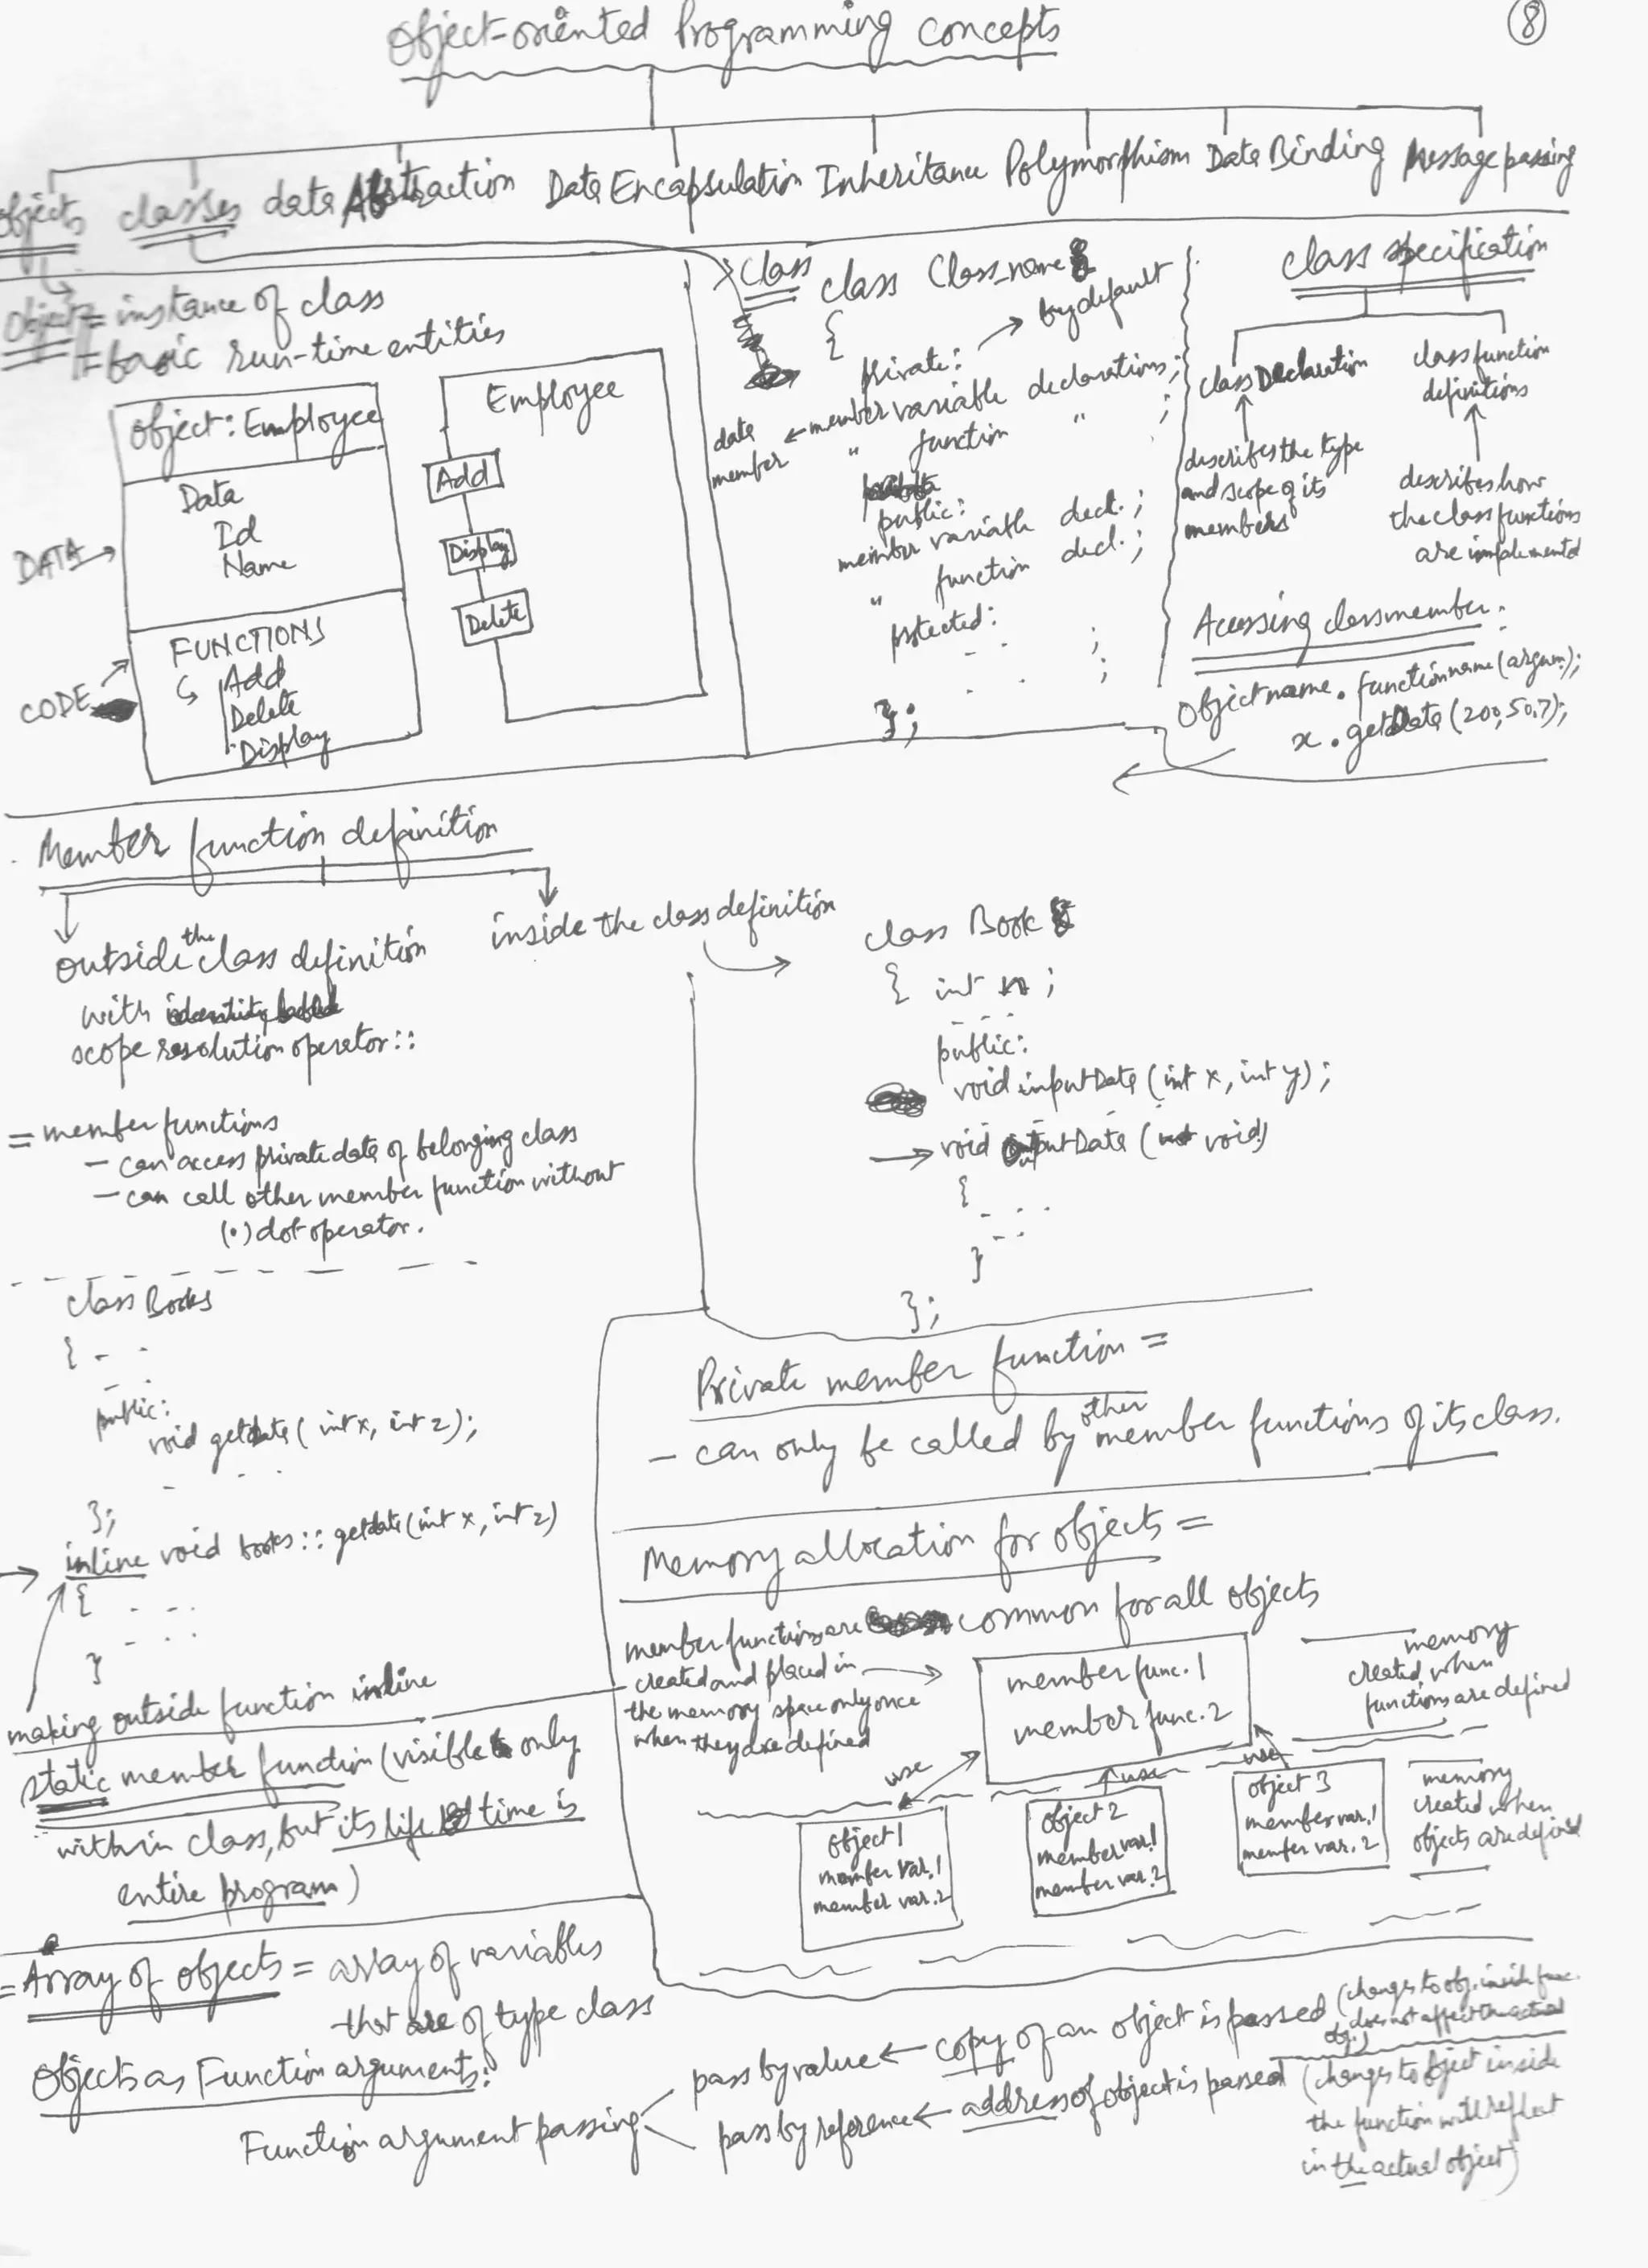 Object-oriented Programming concepts
8
Objects classes data Abstraction Data Encapsulation Inheritance Polymorphism Data Binding Message passing
Object = instance of class
= basic run-time entities
Object: Employee
Data
Id
Name
DATA →
FUNCTIONS
Add
Delete
Display
CODE
Employee
Add
Display
Delete
Class
class Class_name
{
private: → by default
member variable declarations;
data member
" function " ;
public:
member variable decl.;
" function decl.;
protected:
- - ;
- - ;
};
class specification
class Declaration
describes the type
and scope of its
members
class function
definitions
describes how
the class functions
are implemented
Accessing class member:
Objectname.functionname(argum.);
x.getData(200,50.7);
Member function definition
outside the class definition
with
scope resolution operator ::
inside the class definition
class Book
{ int n;
- - - -
public:
void inputData (int x, int y);
→ void outputData ( void)
{
- - - -
- - -
}
};
= member functions
- can access private data of belonging class
- can call other member function without
(.) dot operator.
class Books
{ - -
- -
public:
void getdata( int x, int z);
- - -
};
→ inline void books :: getdata(int x, int z)
{ - - -
- - -
}
making outside function inline
static member function (visible only
within class, but its life time is
entire program)
Private member function =
- can only be called by other member functions of its class.
Memory allocation for objects =
member functions are
created and placed in
the memory space only once
when they are defined
common for all objects
member func. 1
member func. 2
memory
created when
functions are defined
use
use
use
object 1
member var. 1
member var. 2
object 2
member var. 1
member var. 2
object 3
member var. 1
member var. 2
memory
created when
objects are defined
= Array of objects = array of variables
that are of type class
Objects as Function arguments:
Function argument passing
pass by value ← copy of an object is passed (changes to obj. inside func.
does not affect the actual
obj.)
pass by reference ← address of object is passed (changes to object inside
the function will reflect
in the actual object)